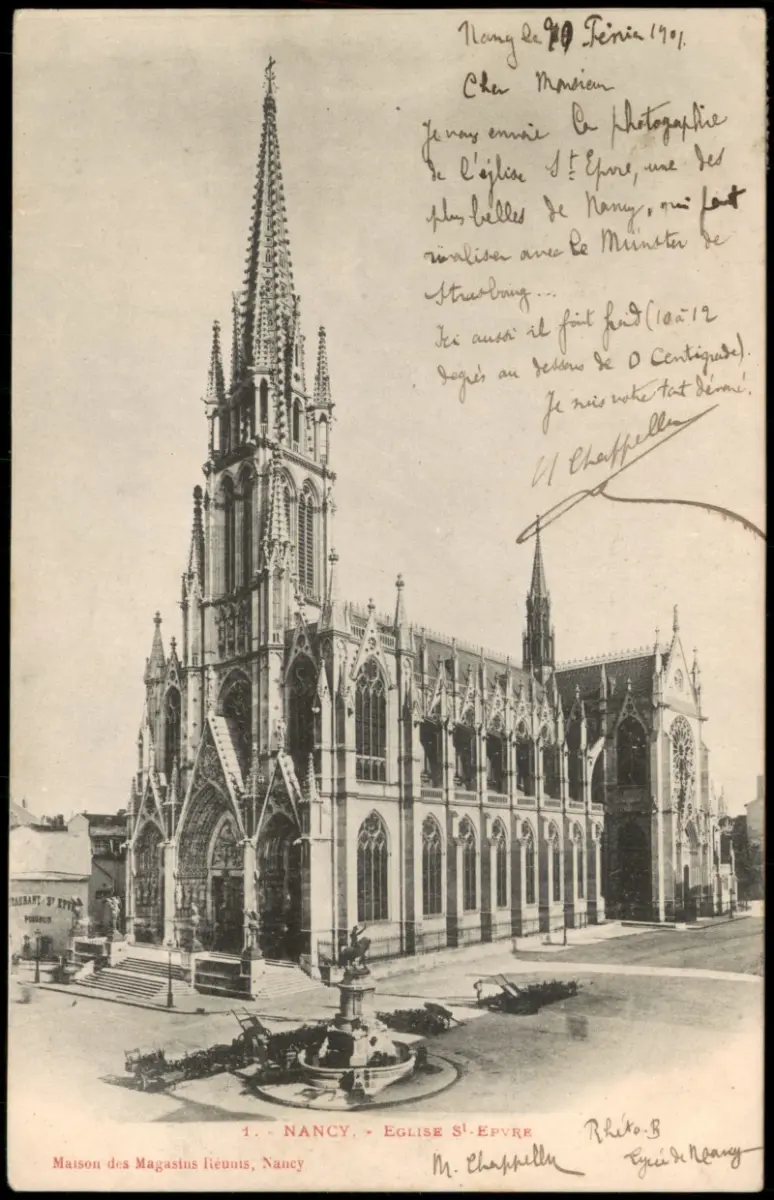 Nancy le 20 Février 1901.
Cher Monsieur
Je vous envoie la photographie
de l'église St Epvre, une des
plus belles de Nancy, qui peut
rivaliser avec le Münster de
Strasbourg...
Ici aussi il fait froid (10 à 12
degrés au dessous de 0 Centigrade).
Je suis votre tout dévoué.
Chappellu
RANT St EPV
1. - NANCY. - EGLISE St-EPVRE
Maison des Magasins Réunis, Nancy
M. Chappellu
Rhéto-B
Lycée de Nancy